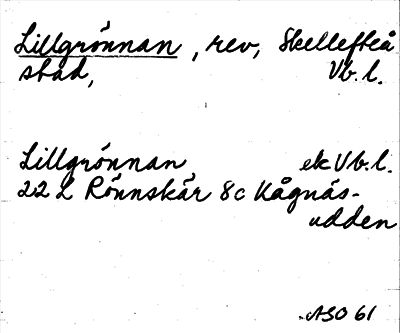 Lillgrönnan, rev, Skellefteå
stad, Vb.l.
Lillgrönnan, ek Vb.l.
22 L Rönnskär 8c Kågnäs-
udden
ASO 61